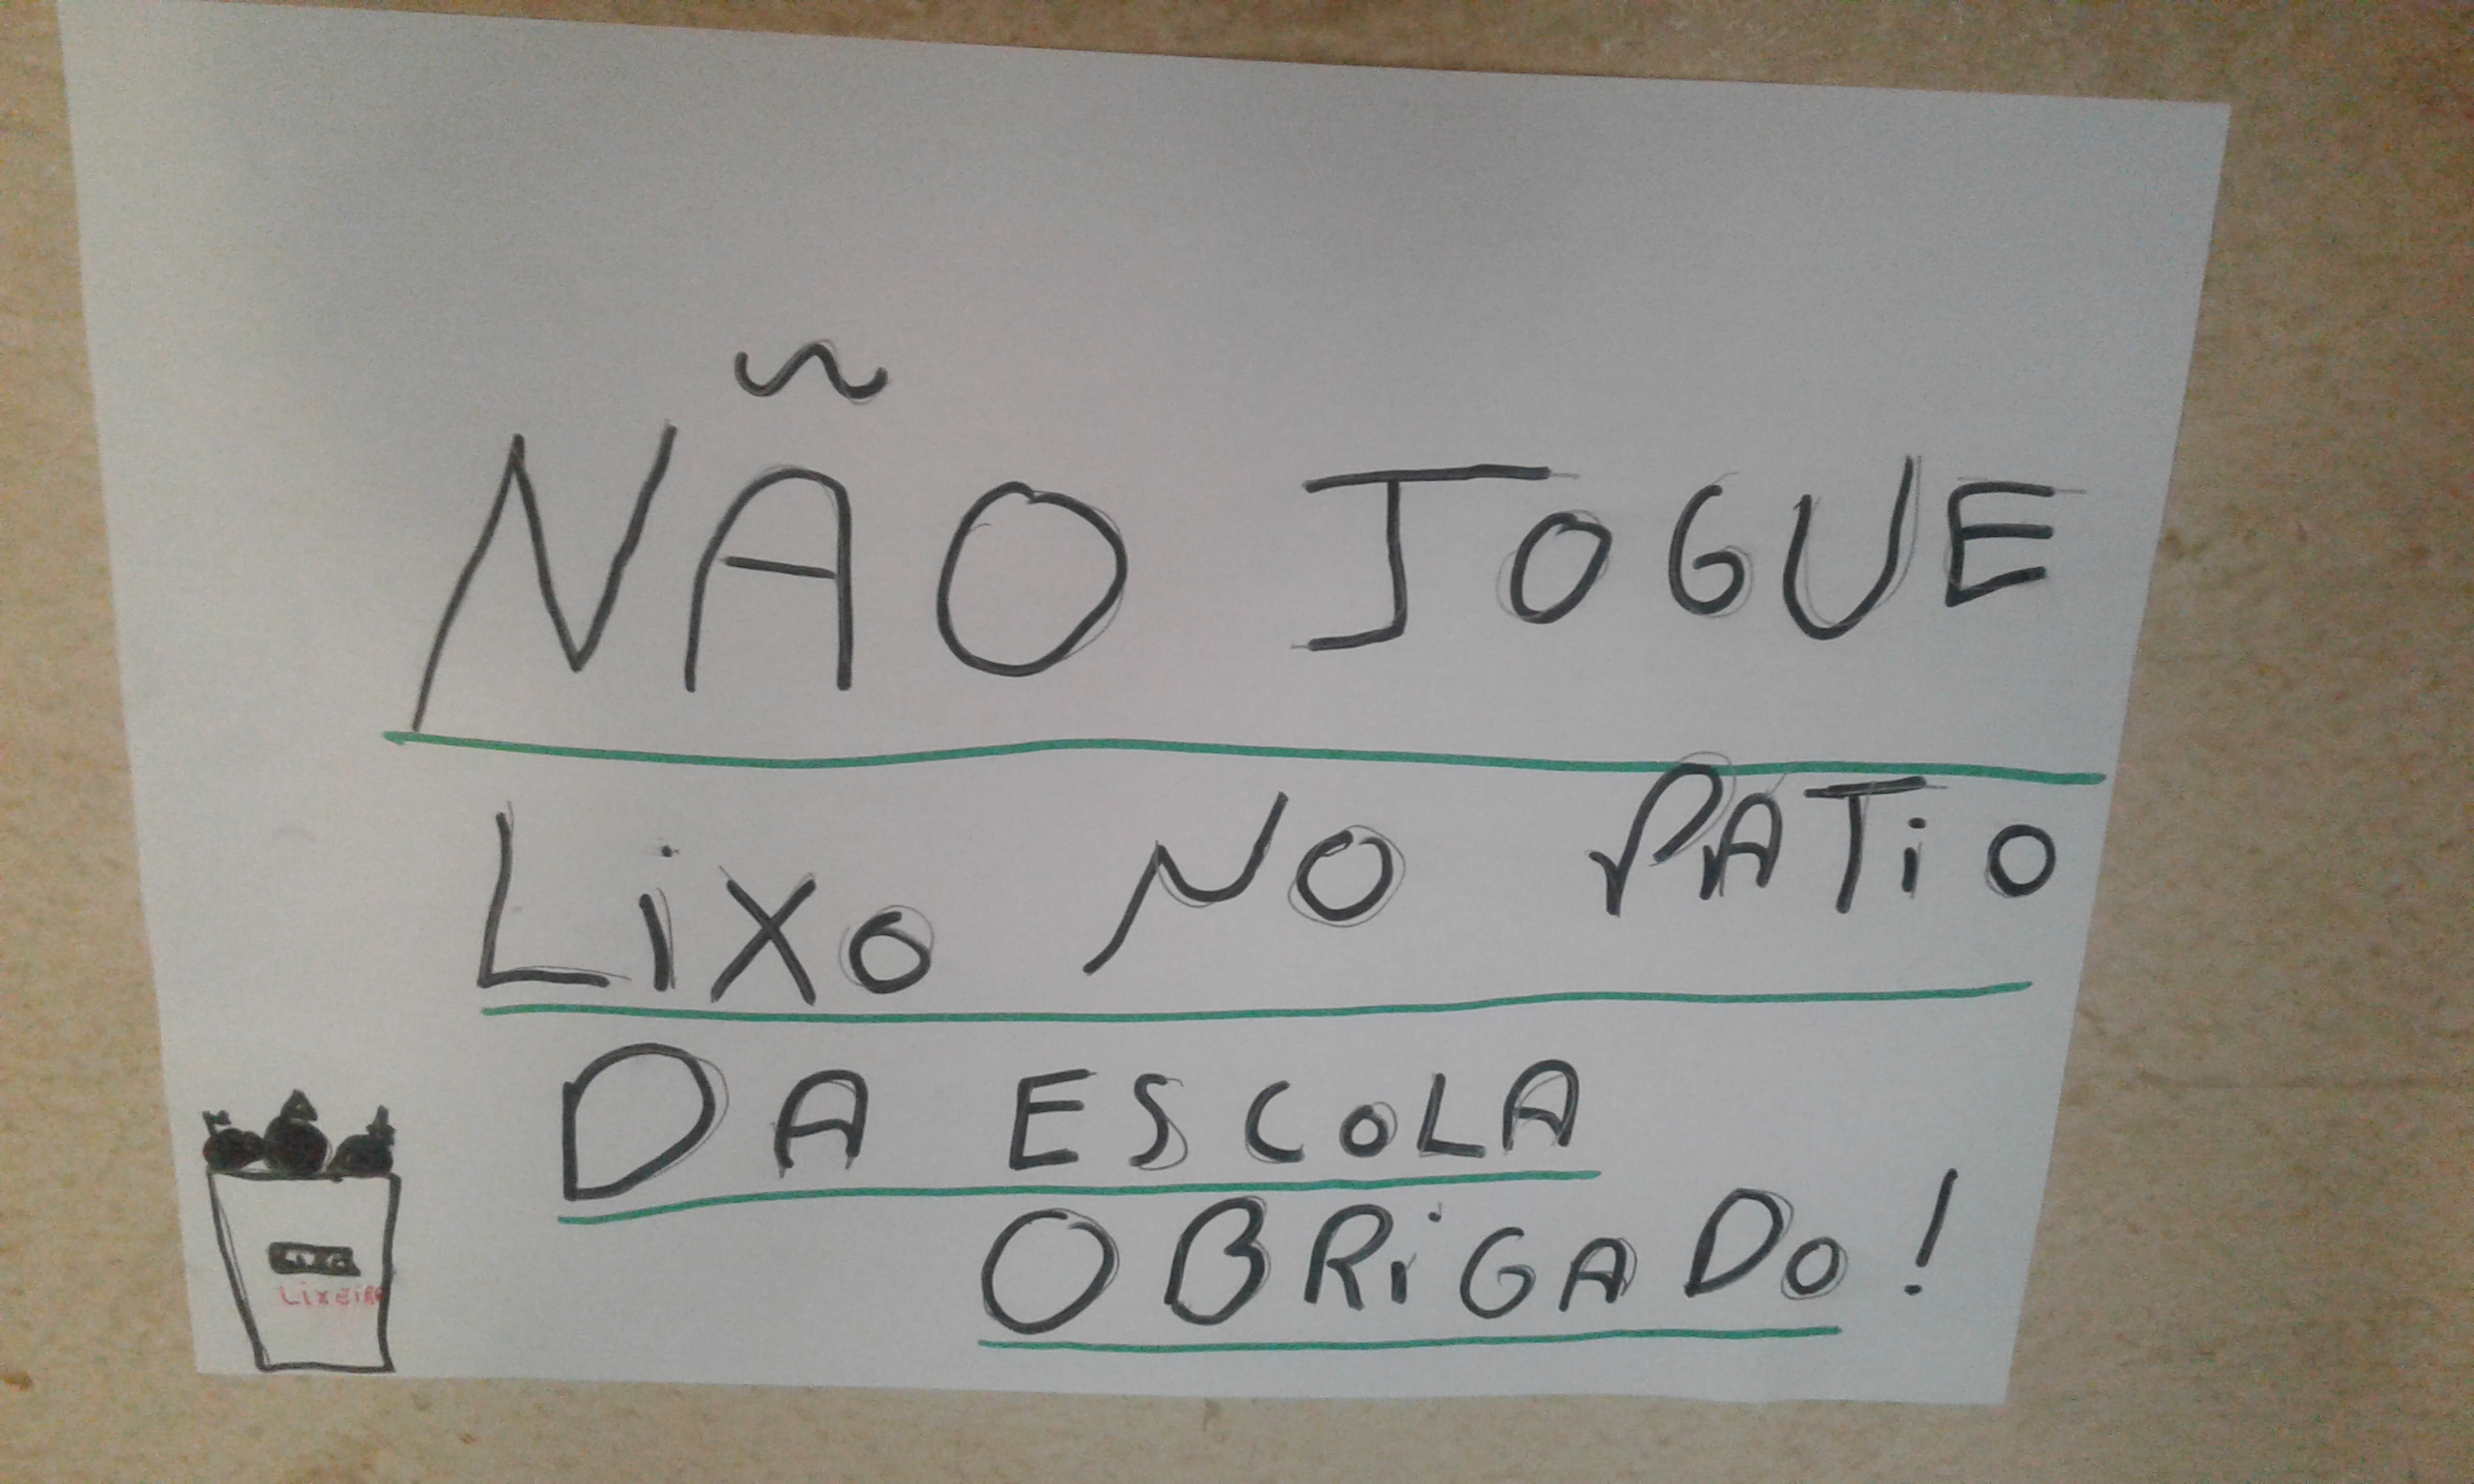 NÃO JOGUE
LiXo NO PATiO
DA ESCoLA
OBRiGADo!
LiXEiRA